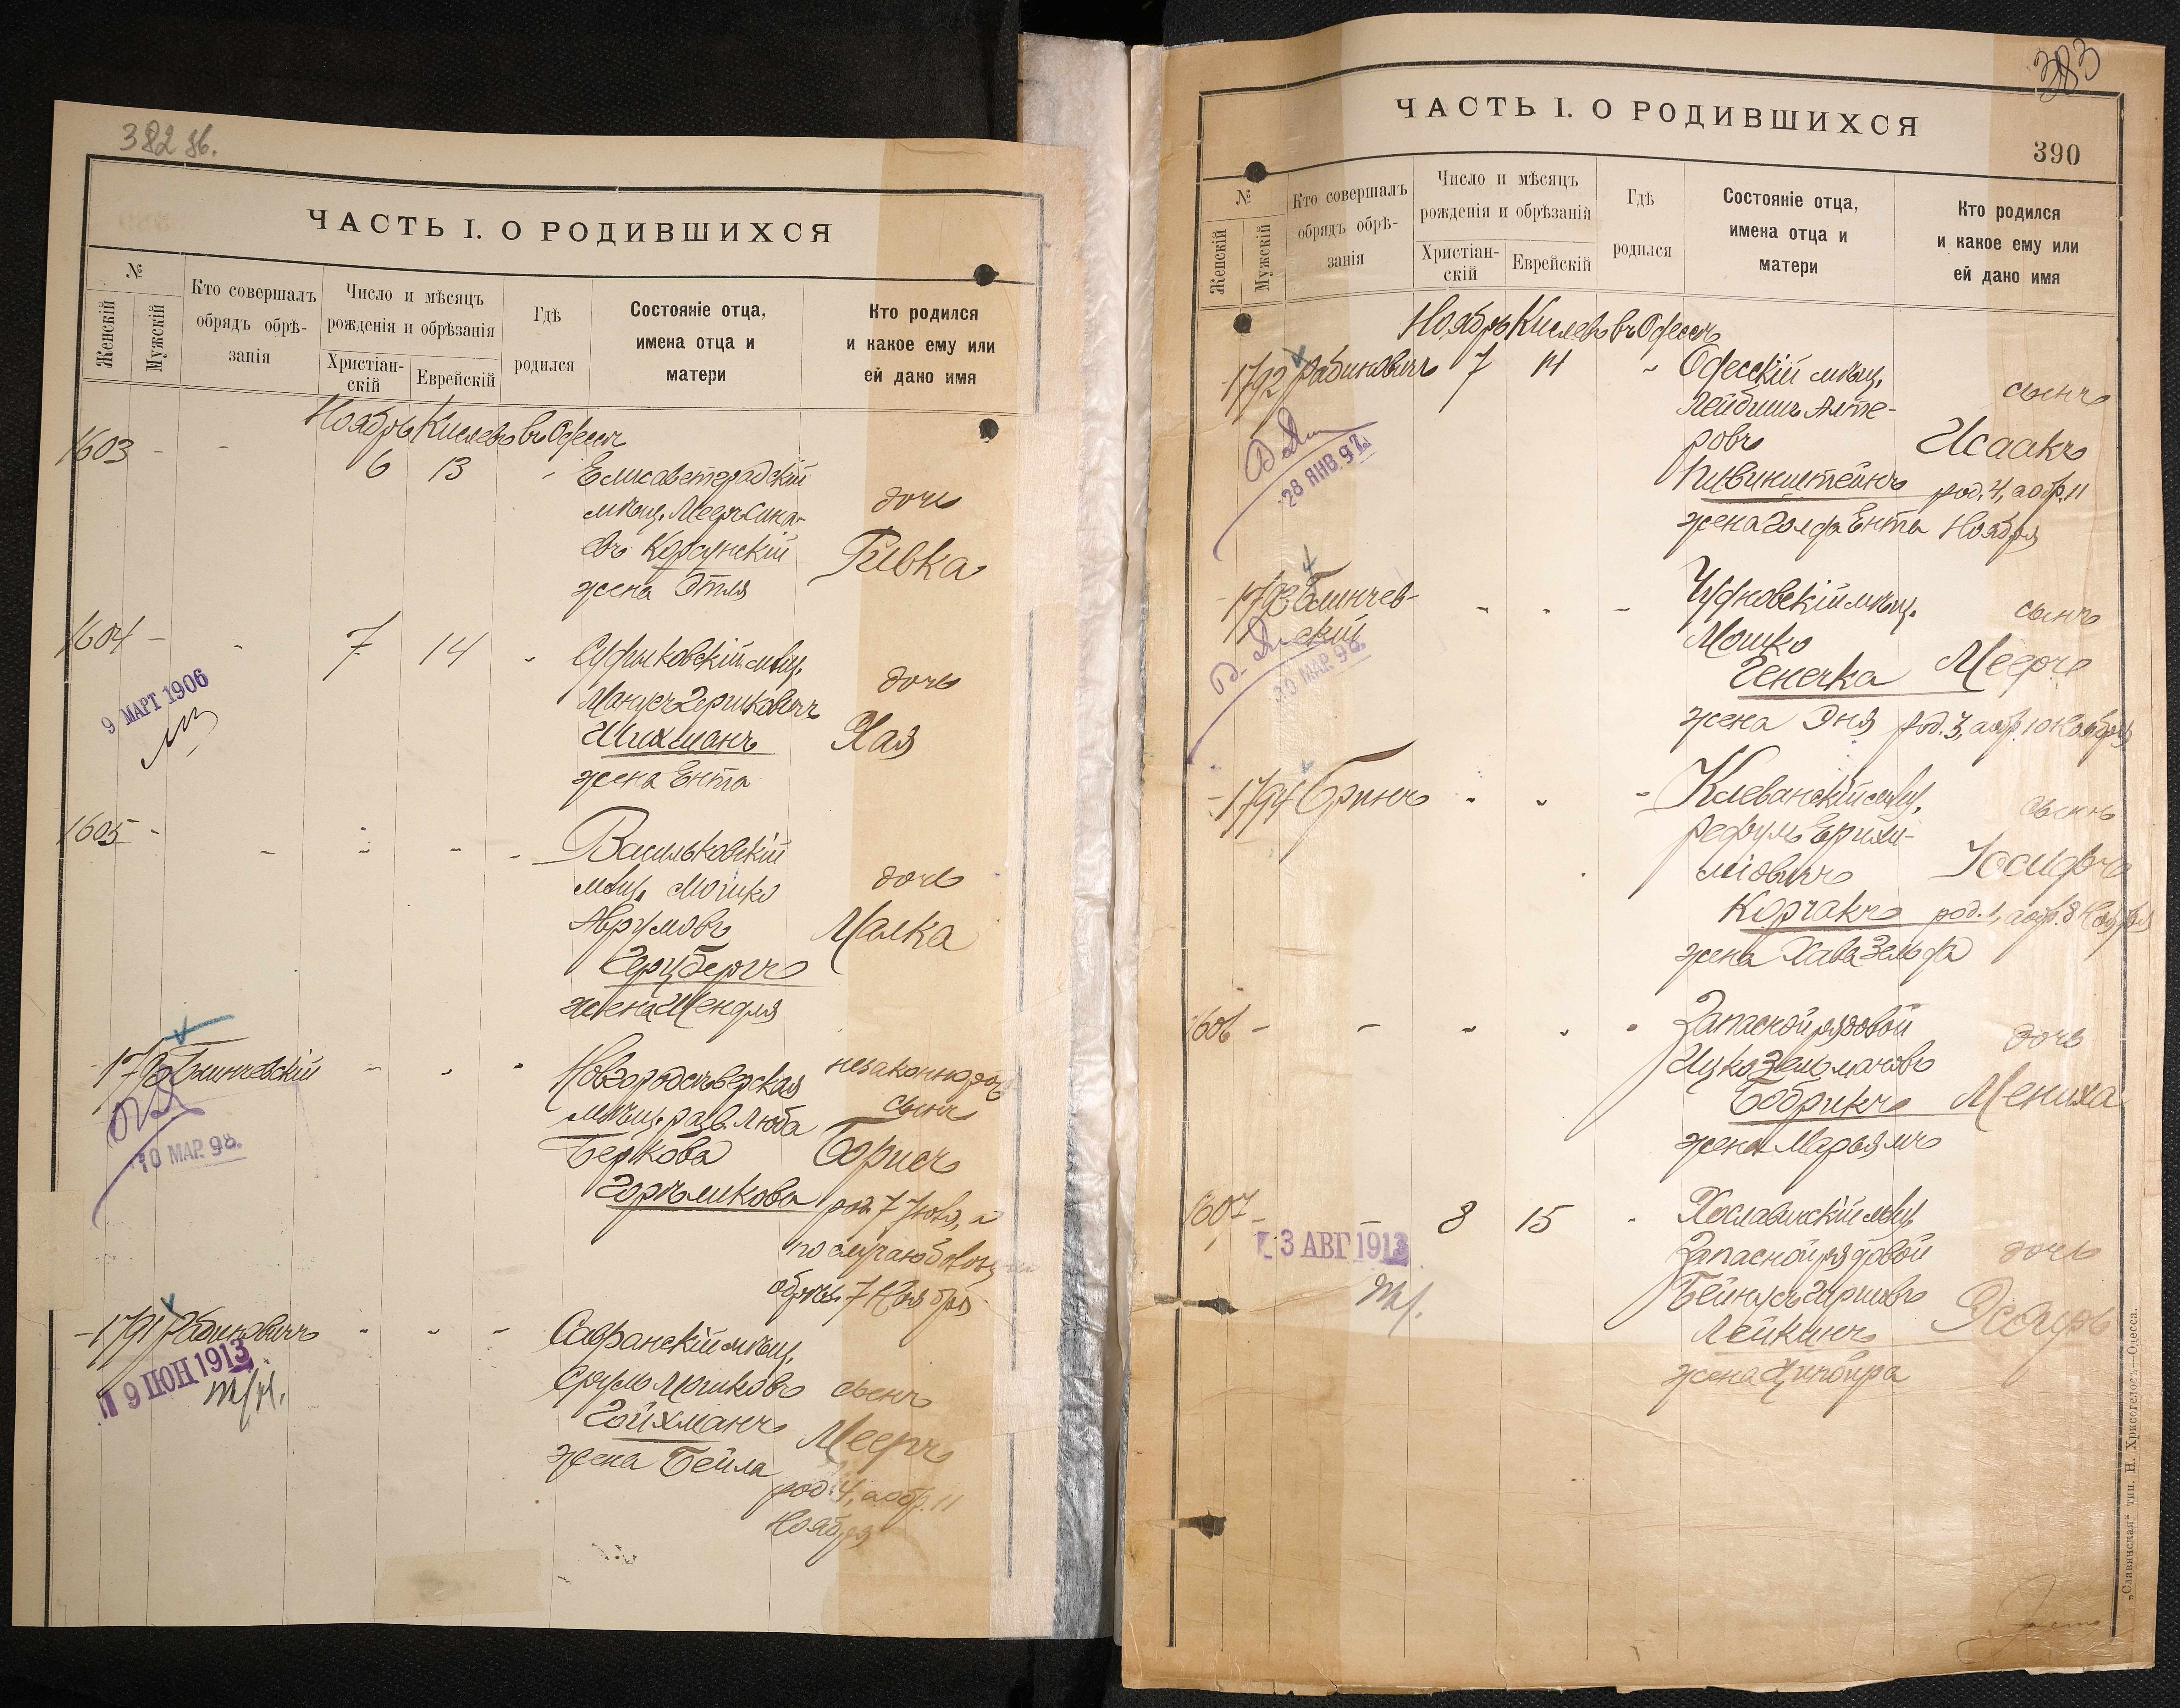 382 об.
ЧАСТЬ I. О РОДИВШИХСЯ
№
Женскій
Мужскій
Кто совершалъ
обрядъ обрѣ-
занія
Число и мѣсяцъ
рожденія и обрѣзанія
Христіан-
скій
Еврейскій
Гдѣ
родился
Состояніе отца,
имена отца и
матери
Кто родился
и какое ему или
ей дано имя
Ноябрь Кислевъ въ Одессѣ
1603 - - 6 13 - Елисаветградскій
мѣщ. Мееръ
въ Корсунскій
жена Этля
дочь
Ривка
1604 - - 7 14 -
9 МАРТ 1906
мѣщ.
Манусъ Гершковичъ
Шихманъ
жена Ента
дочь
Хая
1605 - - - - - Васильковскій
мѣщ. Мошко
Аврумовъ
Герцбергъ
жена Шендля
дочь
Малка
- 1790 Блинчевскій - - -
10 МАР. 98.
Новгородсѣверская
мѣщ. разв. Люба
Беркова
Горѣликова
незаконнорож
сынъ
Борисъ
род. 7 Іюля, а
по случаю болѣзни
обрѣз. 7 Ноября
- 1791 Рабиновичъ - - -
19 ІЮН 1913
Савранскій мѣщ.
Сруль Мошковъ
Гойхманъ
жена Бейла
сынъ
Мееръ
род. 4, а обр. 11
Ноября
383
390
ЧАСТЬ I. О РОДИВШИХСЯ
№
Женскій
Мужскій
Кто совершалъ
обрядъ обрѣ-
занія
Число и мѣсяцъ
рожденія и обрѣзаній
Христіан-
скій
Еврейскій
Гдѣ
родился
Состояніе отца,
имена отца и
матери
Кто родился
и какое ему или
ей дано имя
Ноябрь Кислевъ въ Одессѣ
- 1792 Рабиновичъ 7 14 -
28 ЯНВ. 98.
Одесскій мѣщ.
Лейбишъ Алте-
ровъ
Пивинштейнъ
жена Голда Ента
сынъ
Исаакъ
род. 4, а обр. 11
Ноября
- 1793 Блинчев-
скій - - -
10 МАР. 98.
Чудновскій мѣщ.
Мошко
Генечка
жена Эня
сынъ
Мееръ
род. 3, а обр. 10 Ноября
- 1794 Бринъ - - -
Клеванскій мѣщ.
Рефулъ
Корчакъ
жена Хава Зельда
сынъ
Іосифъ
род. 1, а обр. 8 Ноября
1606 - - - - - Запасной рядовой
Ицко Зельмановъ
Бобрикъ
жена Марьямъ
дочь
Мениха
1607 - - 8 15 -
3 АВГ 1913
Хославичскій мѣщ
Запасной рядовой
Бейнусъ Гиршовъ
Лейкинъ
жена Ципойра
дочь
Эсѳирь
„Славянская“ тип. Н. Хрисогелосъ.—Одесса.